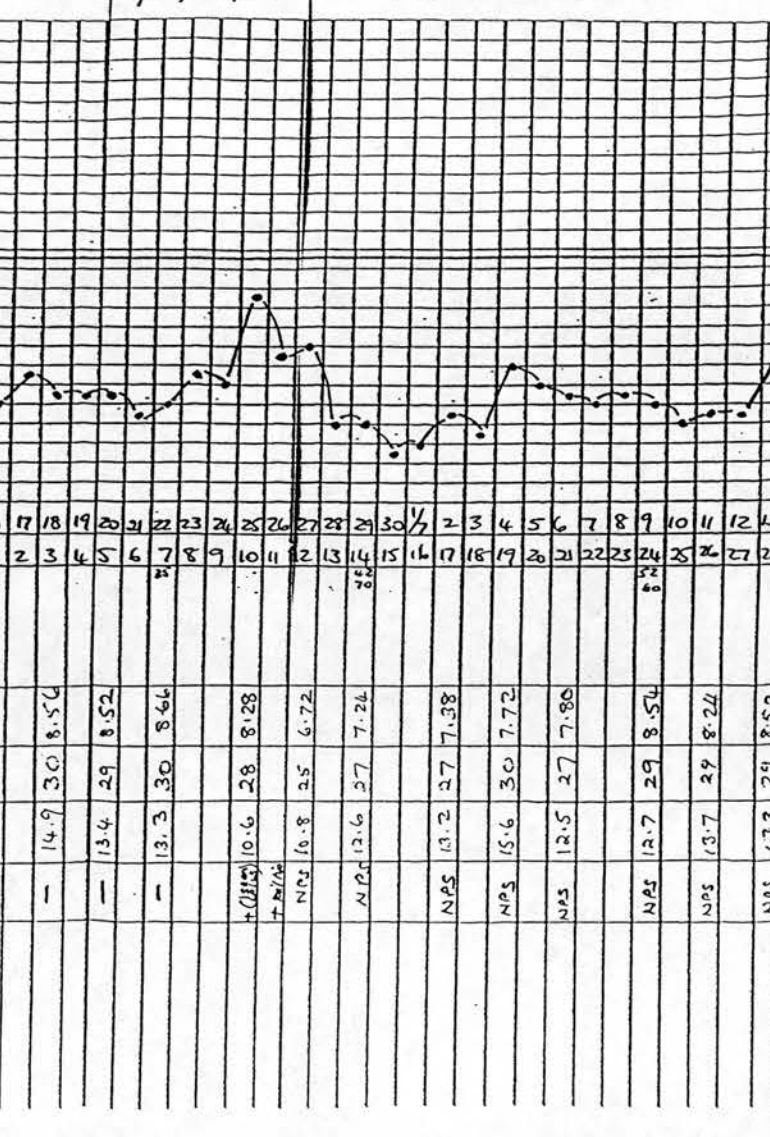 17 18 19 20 21 22 23 24 25 26 27 28 29 30 1/7 2 3 4 5 6 7 8 9 10 11 12
2 3 4 5 6 7 8 9 10 11 12 13 14 15 16 17 18 19 20 21 22 23 24 25 26 27 2
35 42 52
70 60
8.56 8.52 8.66 8.28 6.72 7.24 7.38 7.72 7.80 8.54 8.24
30 29 30 28 25 27 27 30 27 29 29
14.9 13.4 13.3 10.6 10.8 12.6 13.2 15.6 12.5 12.7 13.7
— — — + + NPS NPS NPS NPS NPS NPS NPS NPS